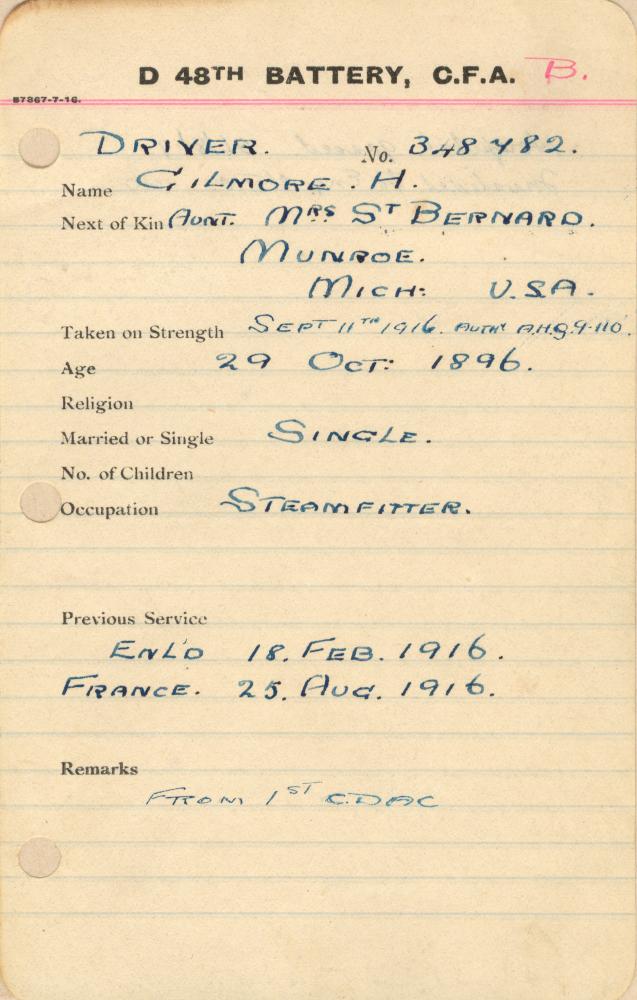 D 48TH BATTERY, C.F.A. B.
B7867-7-16.
DRIVER. No. 348482.
Name GILMORE. H.
Next of Kin AUNT. MRS ST BERNARD.
MUNROE.
MICH: U.S.A.
Taken on Strength SEPT 11TH 1916. AUTHY A.H.Q. 9-110.
Age 29 OCT: 1896.
Religion
Married or Single SINGLE.
No. of Children
Occupation STEAMFITTER.
Previous Service
ENL'D 18. FEB. 1916.
FRANCE. 25. AUG. 1916.
Remarks
FROM 1ST C.D.A.C